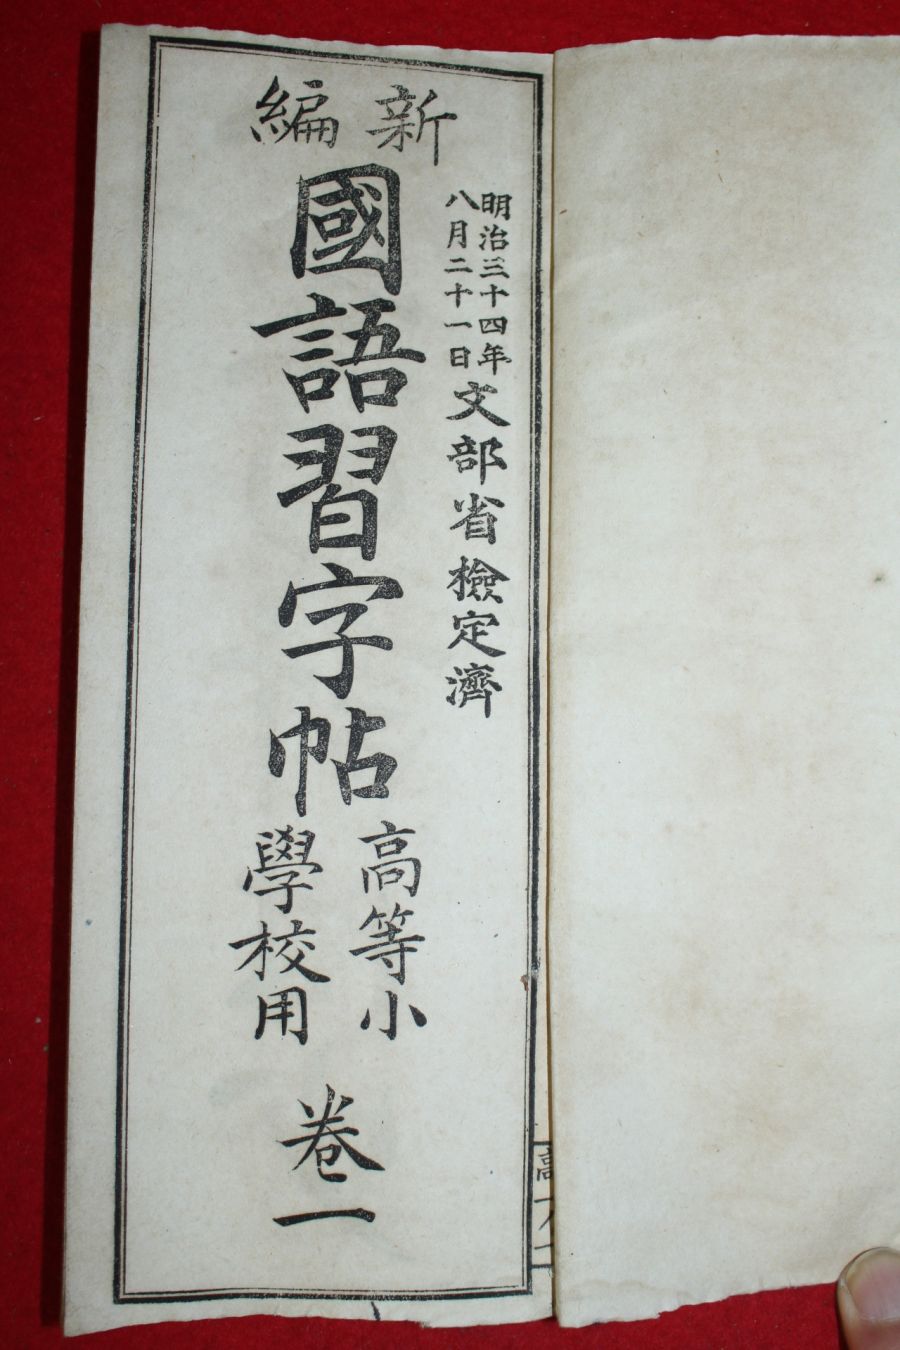 明治三十四年
八月二十一日
文部省檢定濟
新編
國語習字帖
高等小
學校用
卷一